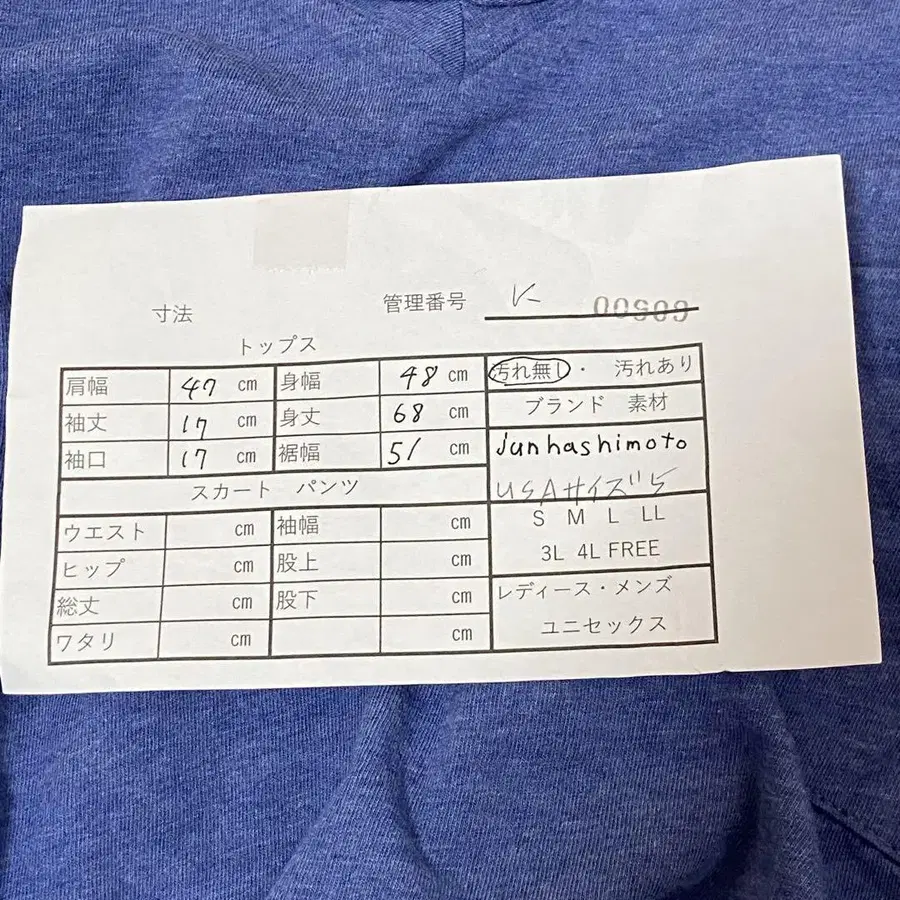 寸法
管理番号 K 00909
トップス
肩幅 47 cm 身幅 48 cm 汚れ無し・ 汚れあり
袖丈 17 cm 身丈 68 cm ブランド 素材
袖口 17 cm 裾幅 51 cm junhashimoto
スカート パンツ USAサイズ
ウエスト cm 袖幅 cm S M L LL
ヒップ cm 股上 cm 3L 4L FREE
総丈 cm 股下 cm レディース・メンズ
ワタリ cm cm ユニセックス